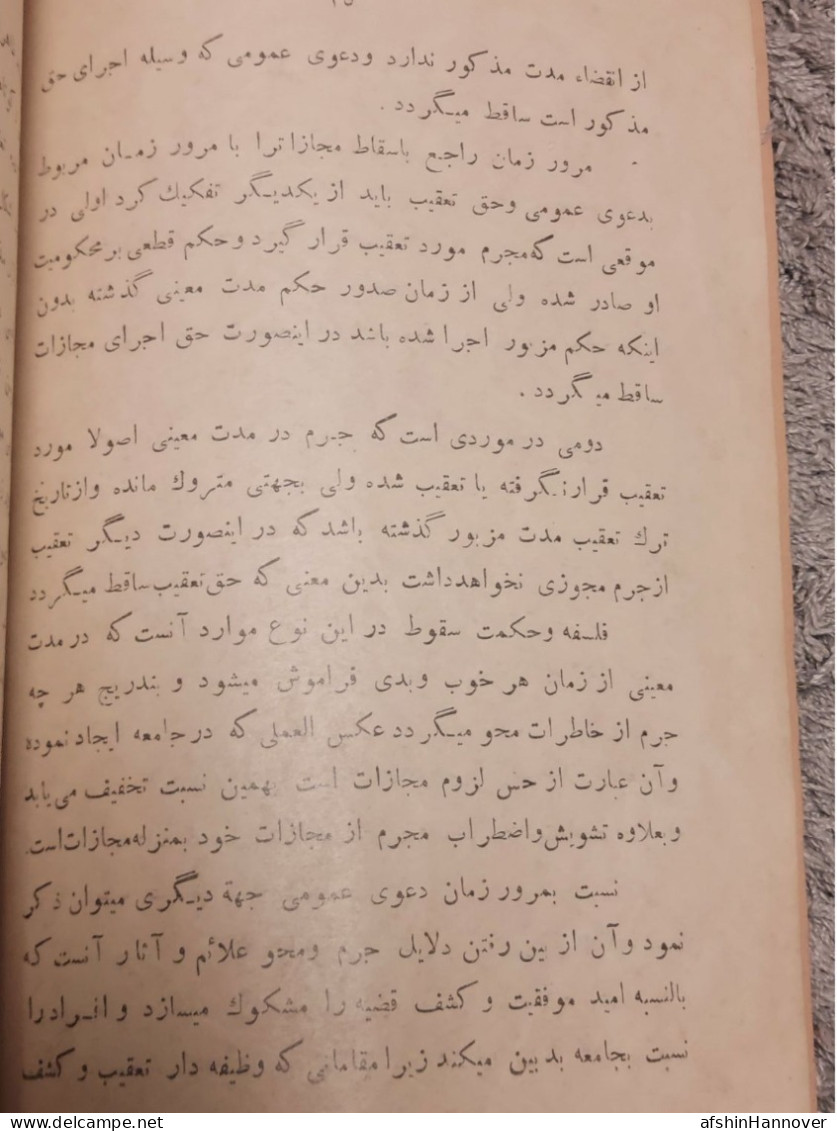 ۳۵
از انقضاء مدت مذکور ندارد ودعوی عمومی که وسیله اجرای حق
مذکور است ساقط میگردد .
- مرور زمان راجع باسقاط مجازاترا با مرور زمان مربوط
بدعوی عمومی وحق تعقیب باید از یکدیگر تفکیك کرد اولی در
موقعی است که مجرم مورد تعقیب قرار گیرد وحکم قطعی بر محکومیت
او صادر شده ولی از زمان صدور حکم مدت معینی گذشته بدون
اینکه حکم مزبور اجرا شده باشد در اینصورت حق اجرای مجازات
ساقط میگردد .
دومی در موردی است که جرم در مدت معینی اصولا مورد
تعقیب قرار نگرفته یا تعقیب شده ولی بجهتی متروك مانده واز تاریخ
ترك تعقیب مدت مزبور گذشته باشد که در اینصورت دیگر تعقیب
از جرم مجوزی نخواهد داشت بدین معنی که حق تعقیب ساقط میگردد
فلسفه وحکمت سقوط در این نوع موارد آنست که در مدت
معینی از زمان هر خوب وبدی فراموش میشود و بتدریج هر چه
جرم از خاطرات محو میگردد عکس العملی که در جامعه ایجاد نموده
وآن عبارت از حس لزوم مجازات است بهمین نسبت تخفیف می یابد
وبعلاوه تشویش واضطراب مجرم از مجازات خود بمنزله مجازات است.
نسبت بمرور زمان دعوی عمومی جهة دیگری میتوان ذکر
نمود وآن از بین رفتن دلایل جرم ومحو علائم و آثار آنست که
بالنسبه امید موفقیت و کشف قضیه را مشکوك میسازد و افراد را
نسبت بجامعه بدبین میکند زیرا مقاماتی که وظیفه دار تعقیب و کشف
afshinHannover